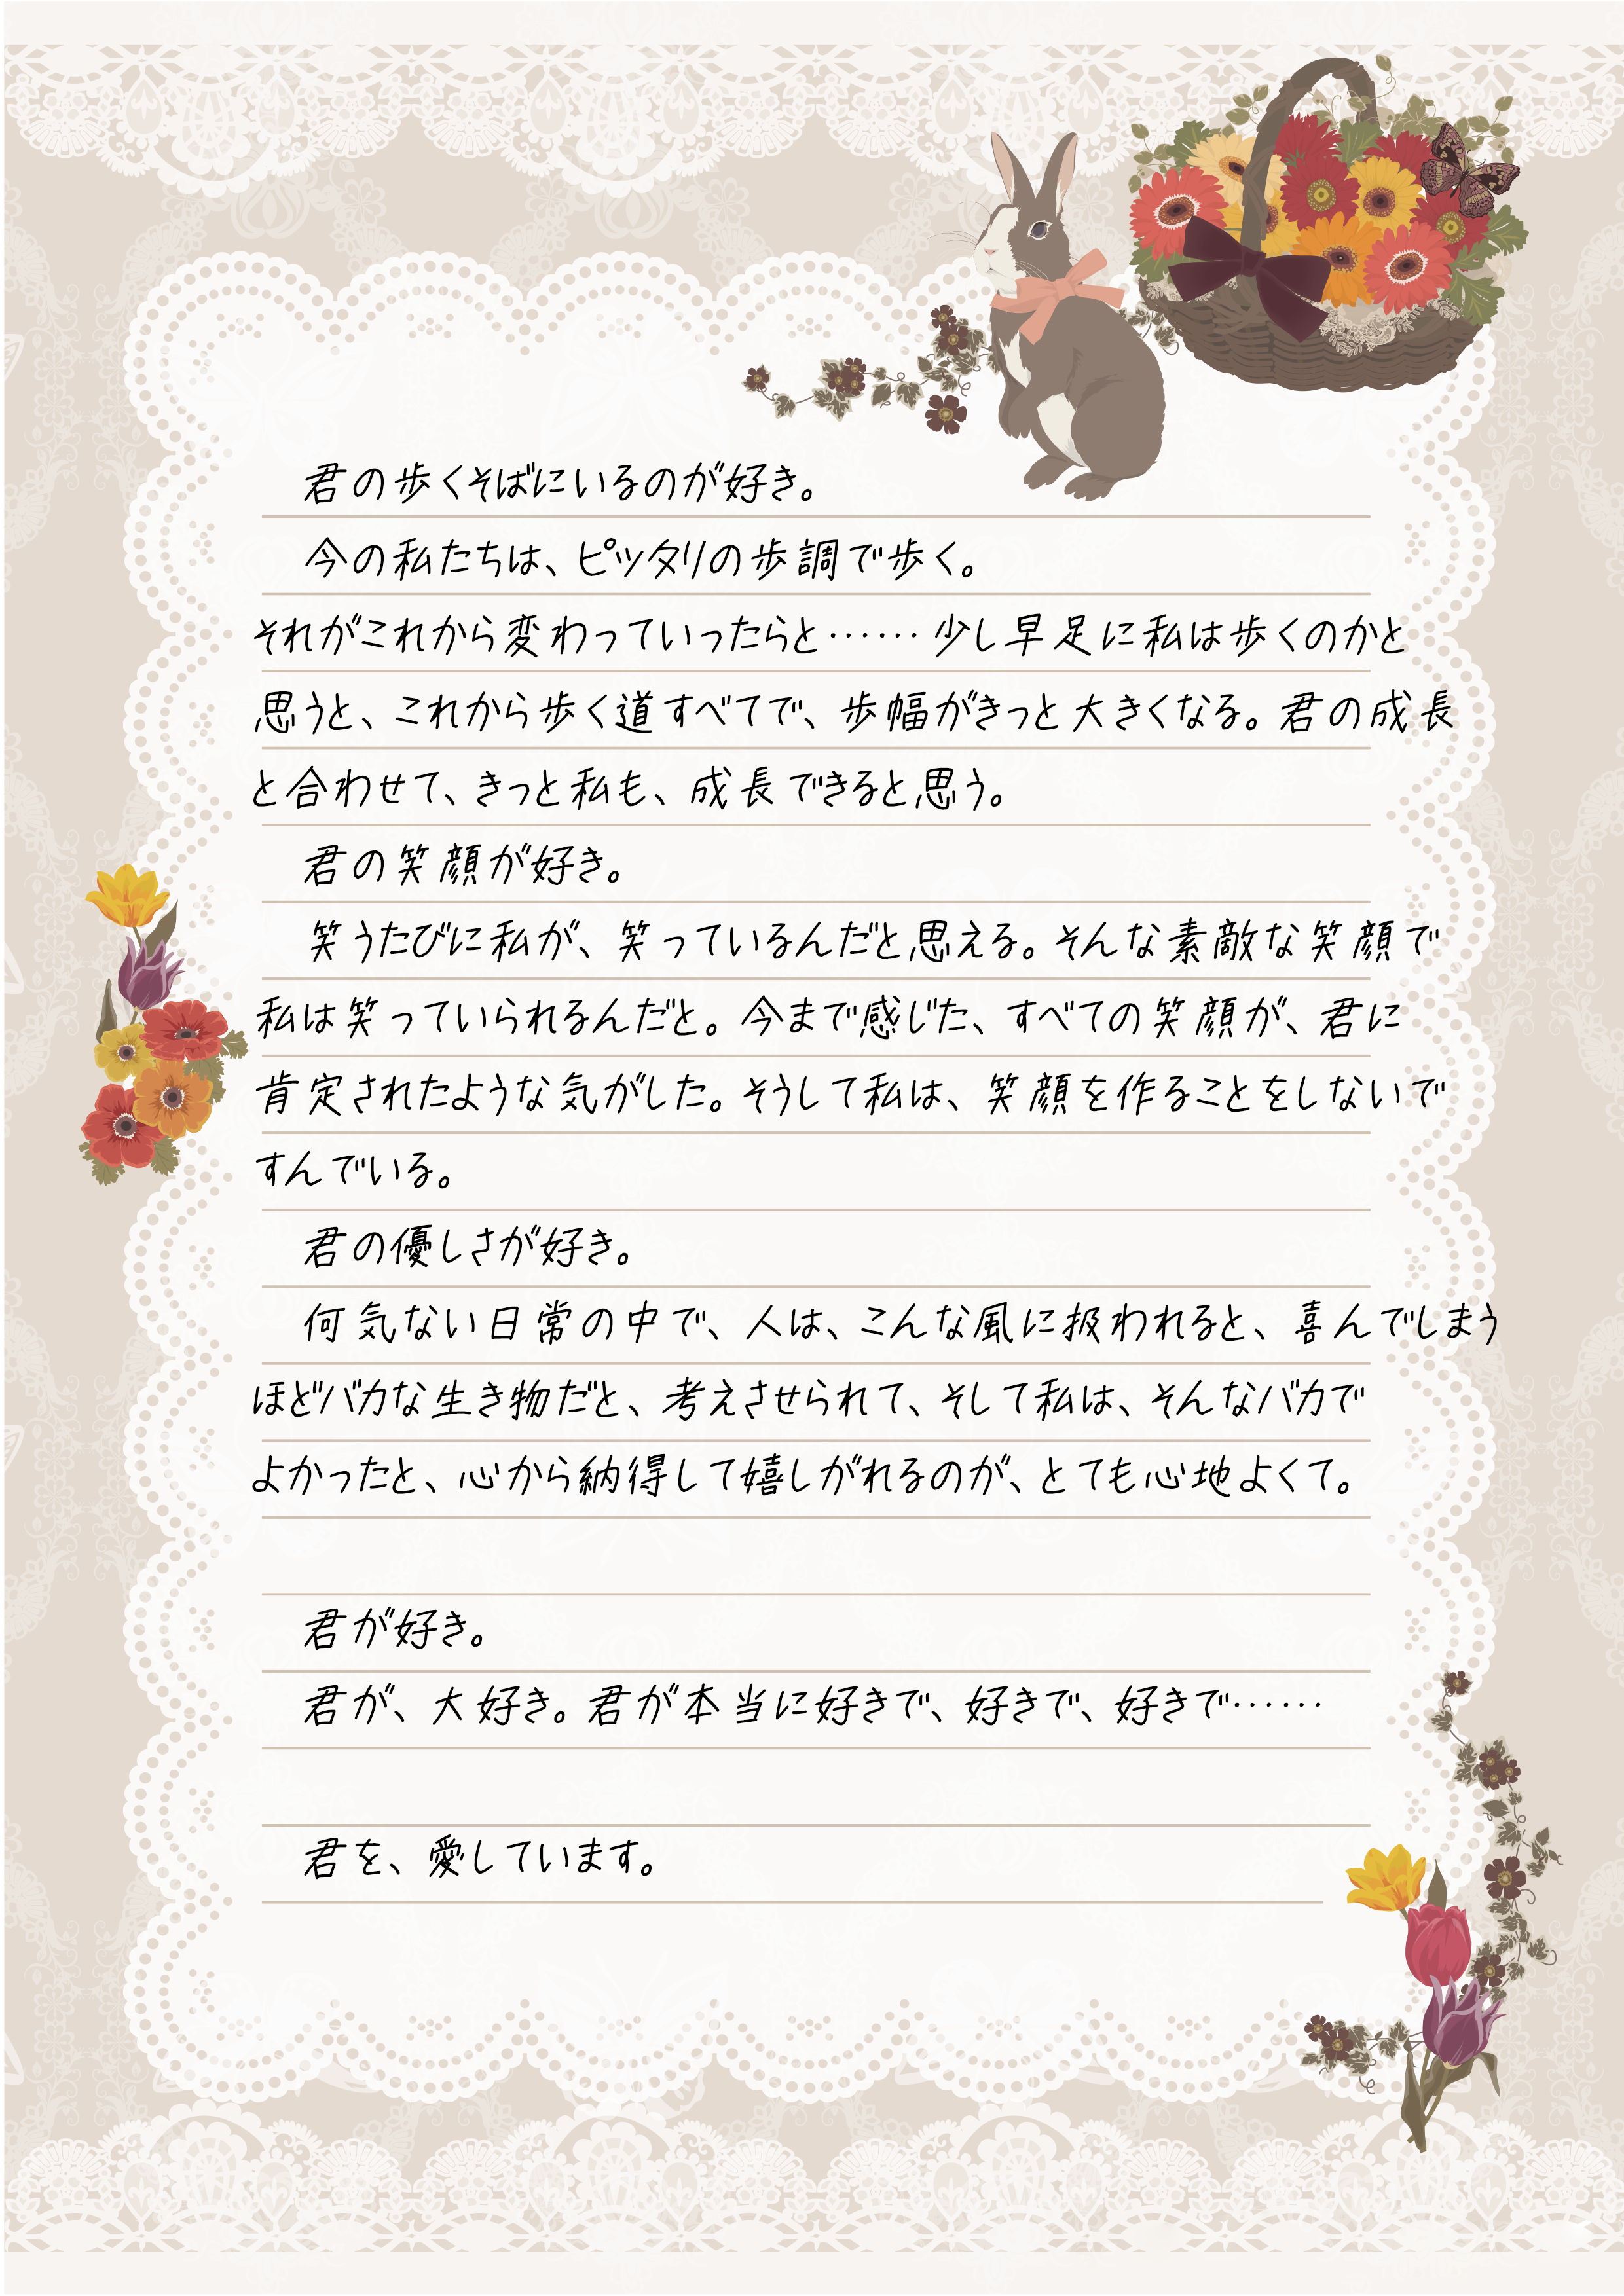 君の歩くそばにいるのが好き。
今の私たちは、ピッタリの歩調で歩く。
それがこれから変わっていったらと……少し早足に私は歩くのかと
思うと、これから歩く道すべてで、歩幅がきっと大きくなる。君の成長
と合わせて、きっと私も、成長できると思う。
君の笑顔が好き。
笑うたびに私が、笑っているんだと思える。そんな素敵な笑顔で
私は笑っていられるんだと。今まで感じた、すべての笑顔が、君に
肯定されたような気がした。そうして私は、笑顔を作ることをしないで
すんでいる。
君の優しさが好き。
何気ない日常の中で、人は、こんな風に扱われると、喜んでしまう
ほどバカな生き物だと、考えさせられて、そして私は、そんなバカで
よかったと、心から納得して嬉しがれるのが、とても心地よくて。
君が好き。
君が、大好き。君が本当に好きで、好きで、好きで……
君を、愛しています。